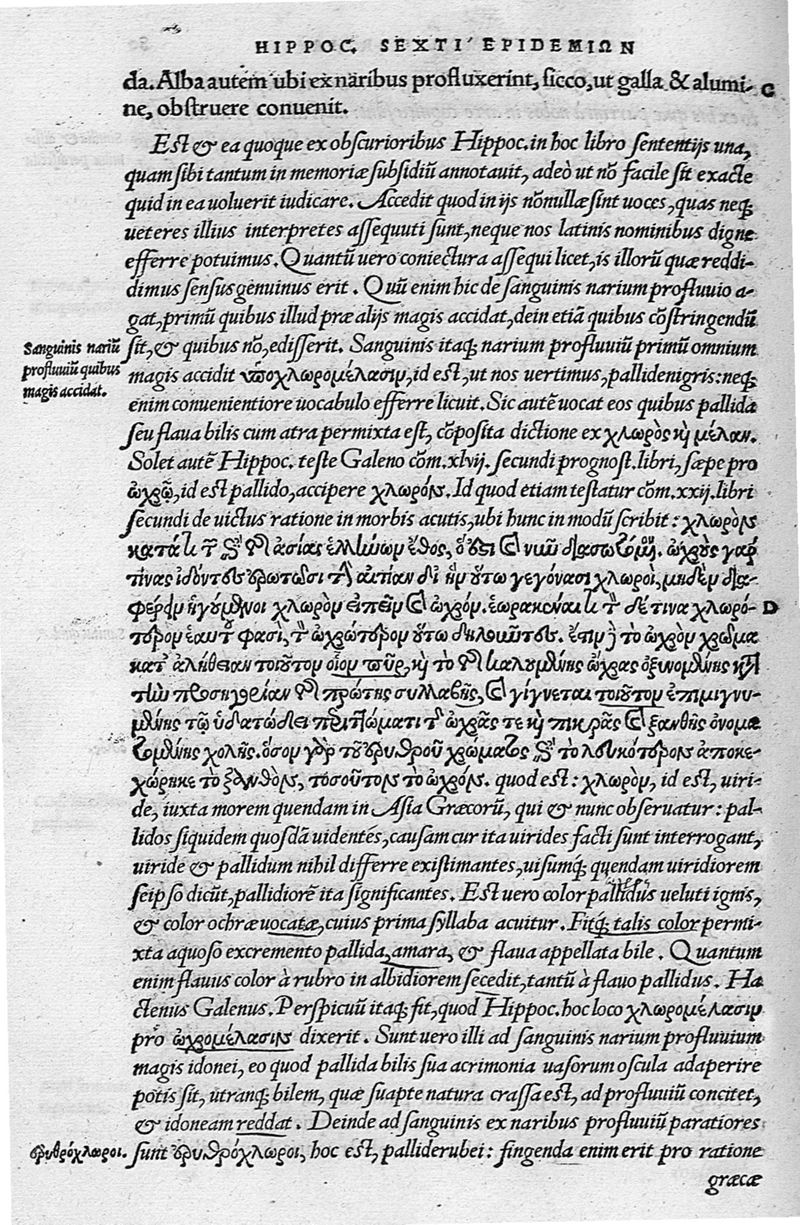 HIPPOC. SEXTI EPIDEMIΩN
da. Alba autem ubi ex naribus profluxerint, sicco, ut galla & alumi-
C
ne, obstruere convenit.
Est & ea quoque ex obscurioribus Hippoc. in hoc libro sententijs una,
quam sibi tantum in memoriæ subsidiū annotauit, adeò ut nō facile sit exacte
quid in ea voluerit iudicare. Accedit quod in ijs nōnullæ sint uoces, quas neq;
ueteres illius interpretes assequuti sunt, neque nos latinis nominibus digne
efferre potuimus. Quantū uero coniectura assequi licet, is illorū quæ reddi-
dimus sensus genuinus erit. Quū enim hic de sanguinis narium profluuio a-
gat, primū quibus illud præ alijs magis accidat, dein etiā quibus cōstringendū
sit, & quibus nō, edisserit. Sanguinis itaq; narium profluuiū primū omnium
Sanguinis nariū
profluuiū quibus
magis accidat.
magis accidit ὑποχλωρομέλασιν, id est, ut nos vertimus, pallidenigris: neq;
enim convenientiore uocabulo efferre licuit. Sic autē uocat eos quibus pallida
seu flaua bilis cum atra permixta est, cōposita dictione ex χλωρὸς κỳ μέλαν.
Solet autē Hippoc. teste Galeno cōm. xlvij. secundi prognost. libri, sæpe pro
ὠχρῷ, id est pallido, accipere χλωρόν. Id quod etiam testatur cōm. xxij. libri
secundi de uictus ratione in morbis acutis, ubi hunc in modū scribit: χλωρὸν
κατά τι τῶν ἐκ τῆς ἀσίας ἑλλήνων ἔθος, ὅπερ καὶ νῦν διασώζεται. ὠχροὺς γάρ
τινας ἰδόντες ἐρωτῶσι τὴν αἰτίαν δι' ἣν οὕτω γεγόνασι χλωροὶ, μηδὲν δια-
φέρειν ἡγούμενοι χλωρὸν εἰπεῖν καὶ ὠχρόν. ἑωρακέναι
D
φασι, τὸν ὠχρότερον οὕτω δηλοῦντες. ἔστι δὲ τὸ ὠχρὸν χρῶμα
κατ' ἀλήθειαν τοιοῦτον οἷον πῦρ, κỳ τὸ τῆς καλουμένης ὤχρας ὀξυνομένης κατὰ
τὴν προσηγορίαν τῆς πρώτης συλλαβῆς, καὶ γίγνεται τοιοῦτον ἐπιμιγνυ-
μένης τῷ ὑδατώδει περιττώματι τῆς ὠχρᾶς τε κỳ πικρᾶς καὶ ξανθῆς ὀνομα
ζομένης χολῆς. ὅσον γὰρ τοῦ ἐρυθροῦ χρώματος ἐπὶ τὸ λευκότερον ἀποκε-
χώρηκε τὸ ξανθὸν, τοσοῦτον τὸ ὠχρόν. quod est: χλωρὸν, id est, uiri-
de, iuxta morem quendam in Asia Græcorū, qui & nunc obseruatur: pal-
lidos siquidem quosdā uidentes, causam cur ita uirides facti sunt interrogant,
uiride & pallidum nihil differre existimantes, uisumq; quendam uiridiorem
seipso dicūt, pallidiorē ita significantes. Est uero color pallidus ueluti ignis,
& color ochræ uocatæ, cuius prima syllaba acuitur. Fitq; talis color permi-
xta aquoso excremento pallida, amara, & flaua appellata bile. Quantum
enim flauus color à rubro in albidiorem secedit, tantū à flauo pallidus. Ha-
ctenus Galenus. Perspicuū itaq; fit, quod Hippoc. hoc loco χλωρομέλασιν
pro ὠχρομέλασιν dixerit. Sunt uero illi ad sanguinis narium profluuium
magis idonei, eo quod pallida bilis sua acrimonia uasorum oscula adaperire
potis sit, utranq; bilem, quæ suapte natura crassa est, ad profluuiū concitet,
& idoneam reddat. Deinde ad sanguinis ex naribus profluuiū paratiores
ἐρυθρόχλωροι.
sunt ἐρυθρόχλωροι, hoc est, palliderubei: fingenda enim erit pro ratione
græcæ